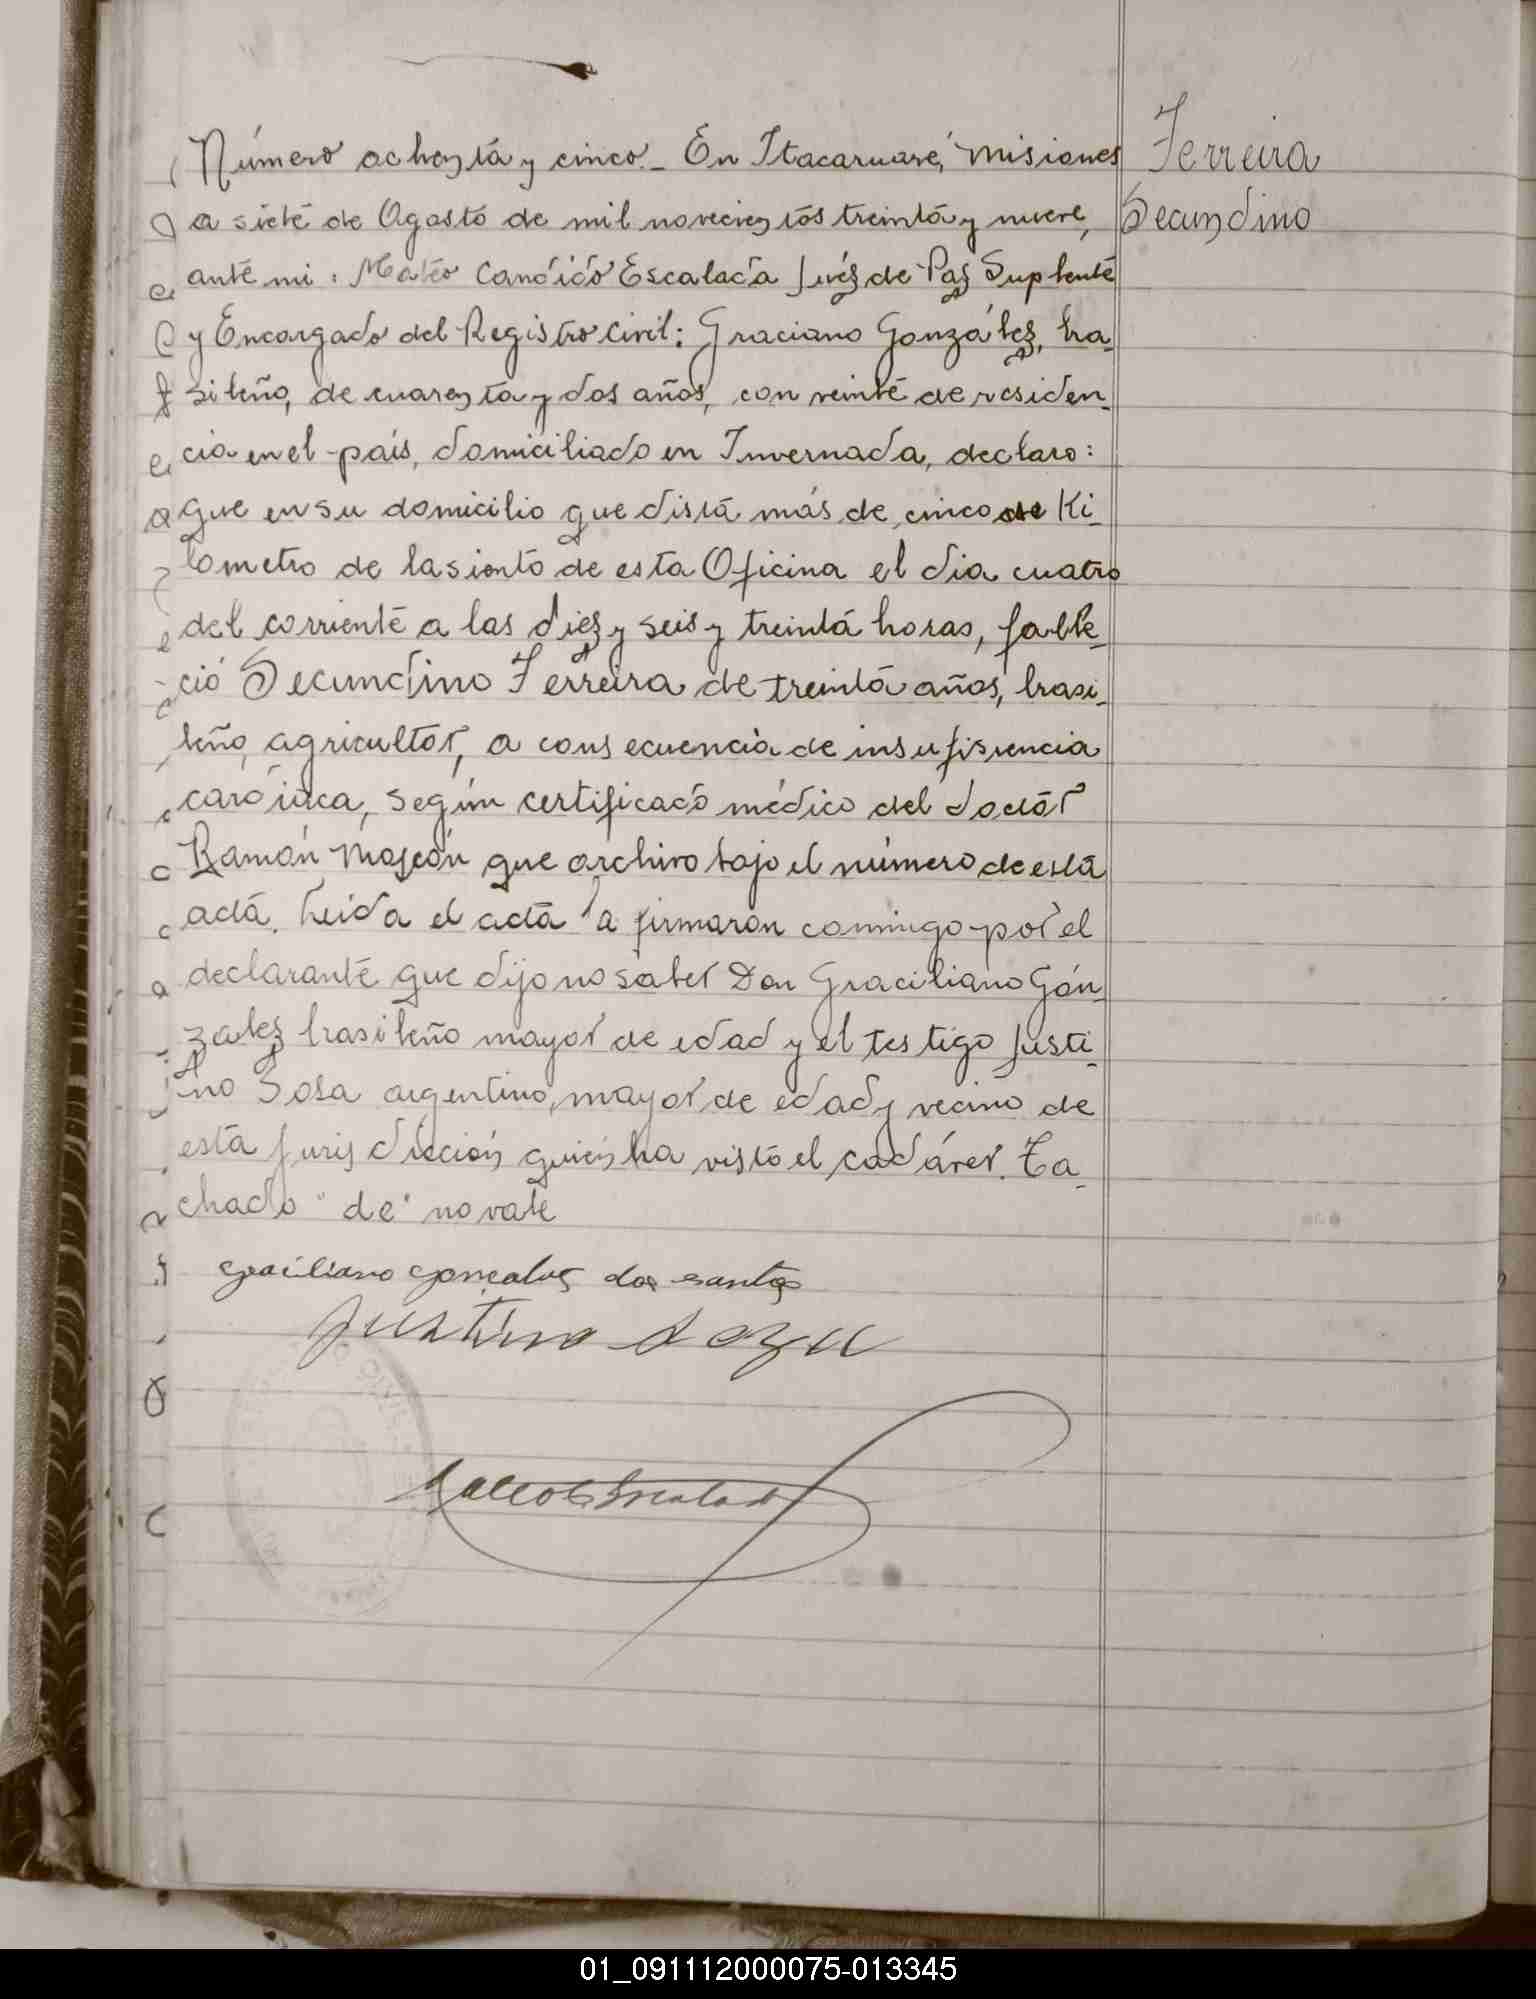 Número ochenta y cinco._ En Itacaruaré, Misiones
a siete de Agosto de mil novecientos treinta y nueve,
ante mi: Mateo Candido Escalada Juéz de Paz Suplente
y Encargado del Registro Civil: Graciano Gonzáles, bra_
sileño, de cuarenta y dos años, con veinte de residen_
cia en el país, domiciliado en Invernada, declaro:
que en su domicilio que dista más de cinco de Ki_
lometro de lasiento de esta Oficina el dia cuatro
del corriente a las diez y seis y treinta horas, falle_
ció Secundino Ferreira de treinta años, brasi_
leño, agricultor, a consecuencia de insufisiencia
cardiáca, según certificado médico del doctor
Ramón que archivo bajo el número de esta
acta. Leida el acta la firmaron conmigo por el
declarante que dijo no saber Don Graciliano Gón_
zalez brasileño mayor de edad y el testigo Justi_
no Sosa argentino, mayor de edad y vecino de
esta jurisdicción quien ha visto el cadáver. Ta_
chado "de" no vale
Ferreira
Secundino
graciliano gonçalves dos santos
Justino Soza
01_091112000075-013345